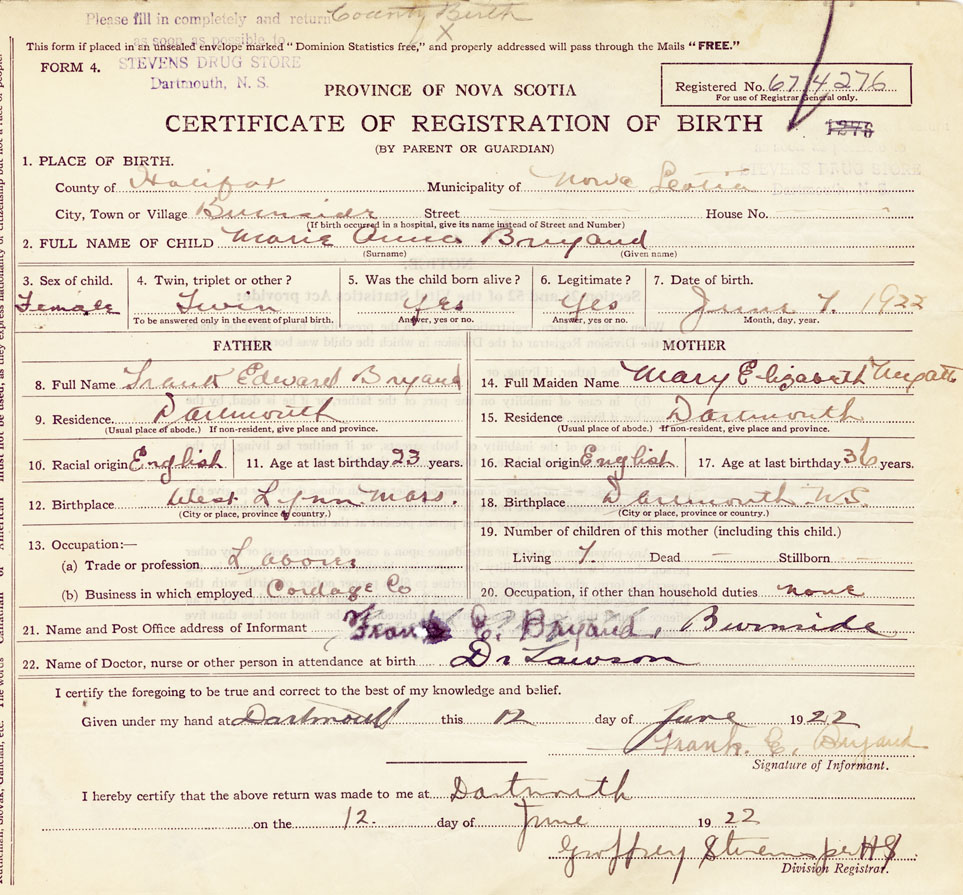 County Birth
X
Please fill in completely and return
as soon as possible to
This form if placed in an unsealed envelope marked "Dominion Statistics free," and properly addressed will pass through the Mails "FREE."
FORM 4.
STEVENS DRUG STORE
Dartmouth, N. S.
PROVINCE OF NOVA SCOTIA
Registered No. 67/4276
For use of Registrar General only.
CERTIFICATE OF REGISTRATION OF BIRTH
1276
(BY PARENT OR GUARDIAN)
1. PLACE OF BIRTH.
County of Halifax Municipality of Nova Scotia
City, Town or Village Burnside Street House No.
(If birth occurred in a hospital, give its name instead of Street and Number)
2. FULL NAME OF CHILD Marie Anna Bruyand
(Surname) (Given name)
3. Sex of child. 4. Twin, triplet or other? 5. Was the child born alive? 6. Legitimate? 7. Date of birth.
Female Twin Yes Yes June 7. 1922
To be answered only in the event of plural birth. Answer, yes or no. Answer, yes or no. Month, day, year.
FATHER MOTHER
8. Full Name Frank Edward Bryand 14. Full Maiden Name Mary Elizabeth Myatt
9. Residence Dartmouth 15. Residence Dartmouth
(Usual place of abode.) If non-resident, give place and province. (Usual place of abode.) If non-resident, give place and province.
10. Racial origin English 11. Age at last birthday 23 years. 16. Racial origin English 17. Age at last birthday 36 years.
12. Birthplace West Lynn Mass. 18. Birthplace Dartmouth N.S.
(City or place, province or country.) (City or place, province or country.)
13. Occupation:— 19. Number of children of this mother (including this child.)
(a) Trade or profession Labour Living 7. Dead — Stillborn —
(b) Business in which employed Cordage Co 20. Occupation, if other than household duties none
21. Name and Post Office address of Informant Frank E. Bryand, Burnside
22. Name of Doctor, nurse or other person in attendance at birth Dr Lawson
I certify the foregoing to be true and correct to the best of my knowledge and belief.
Given under my hand at Dartmouth this 12 day of June 1922
Frank. E. Bryand
Signature of Informant.
I hereby certify that the above return was made to me at Dartmouth
on the 12. day of June 1922
Geoffrey Stevens per HS
Division Registrar.